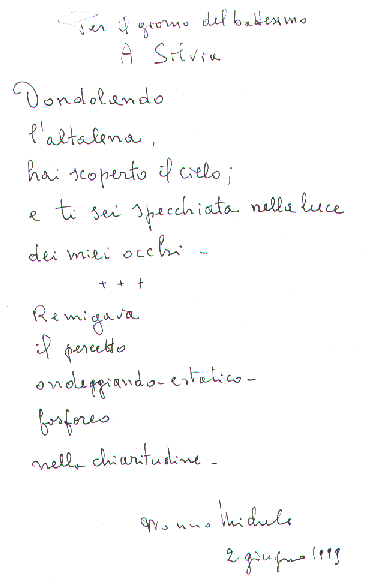 Per il giorno del battesimo
A Silvia
Dondolando
l'altalena,
hai scoperto il cielo;
e ti sei specchiata nella luce
dei miei occhi -
+++
Remigava
il pescetto
ondeggiando-estatico-
fosforeo
nella chiaritudine -
nonno
2 giugno 1999